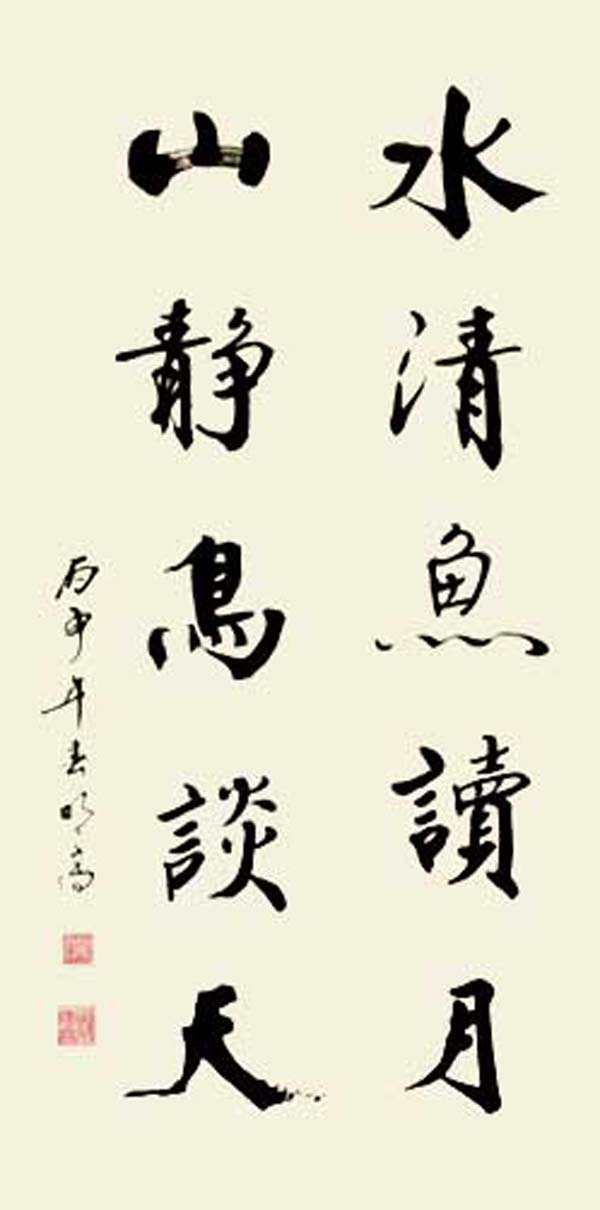 水清魚讀月
山靜鳥談天
丙申年春明高